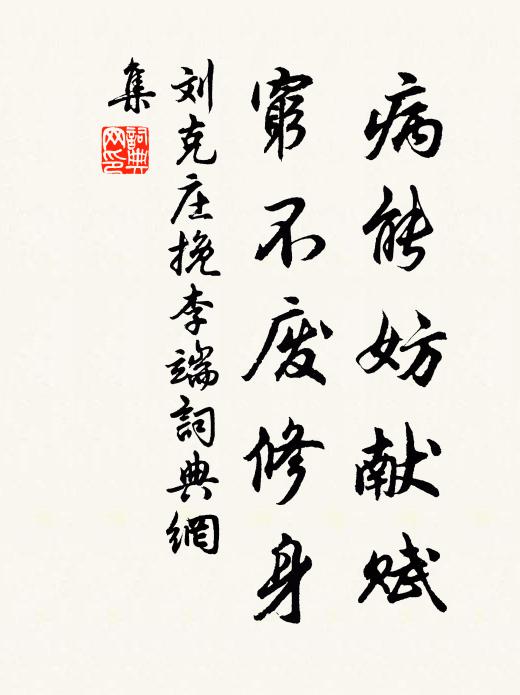 病能妨献赋
穷不废修身
刘克庄挽李端詞典網
集
詞典网印